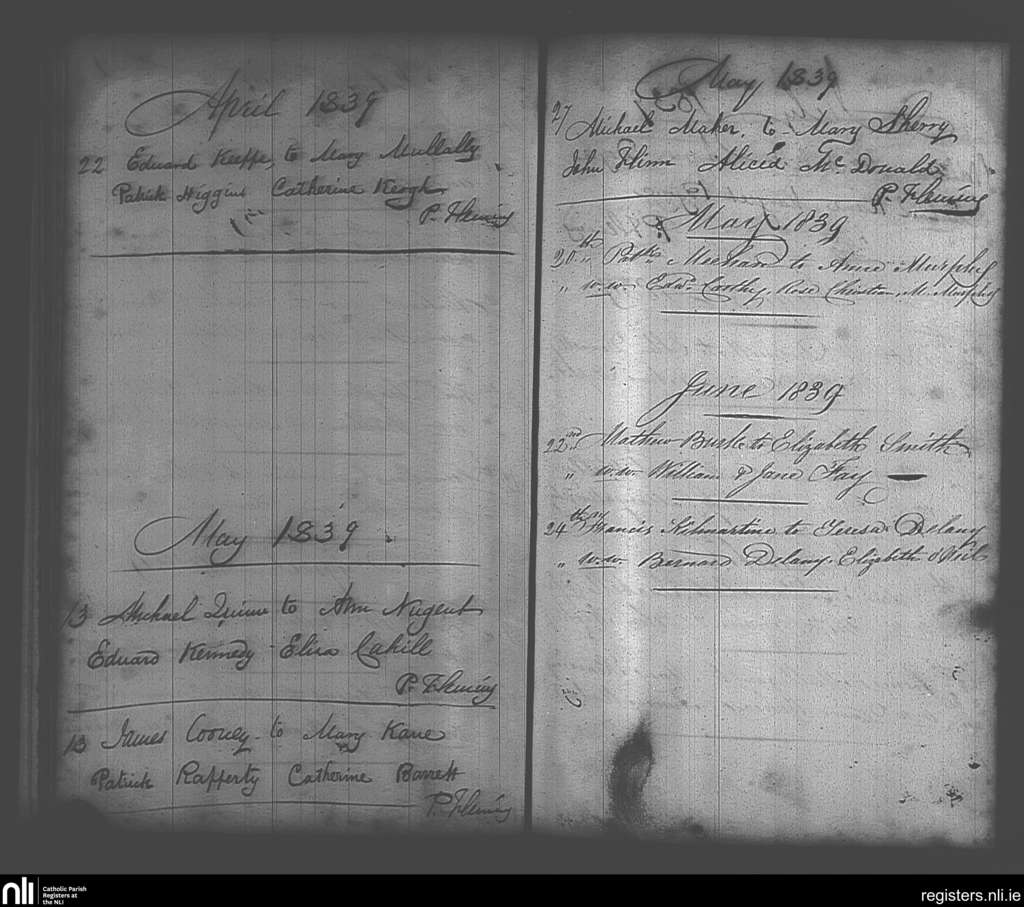 April 1839
22 Eduard Keeffe, to Mary Mullally
Patrick Higgins Catherine Keogh
P. Fleming
May 1839
13 Michael Quinn to Ann Nugent
Eduard Kennedy Eliza Cahill
P. Fleming
13 James Cooney to Mary Kane
Patrick Rafferty Catherine Barrett
P. Fleming
May 1839
27 Michael Maher, to Mary Sherry
John Flinn Alicia Mc Donald
P. Fleming
May 1839
20th Patk. to Anne Murphy
" w.w. Edwd. Rose M. Murphy
June 1839
22nd Mathew Burke to Elizabeth Smith
" w.w. William & Jane Fay
24th Francis Kilmartine to Teresa Delany
" w.w. Bernard Delany. Elizabeth
nli Catholic Parish
Registers at
the NLI
registers.nli.ie